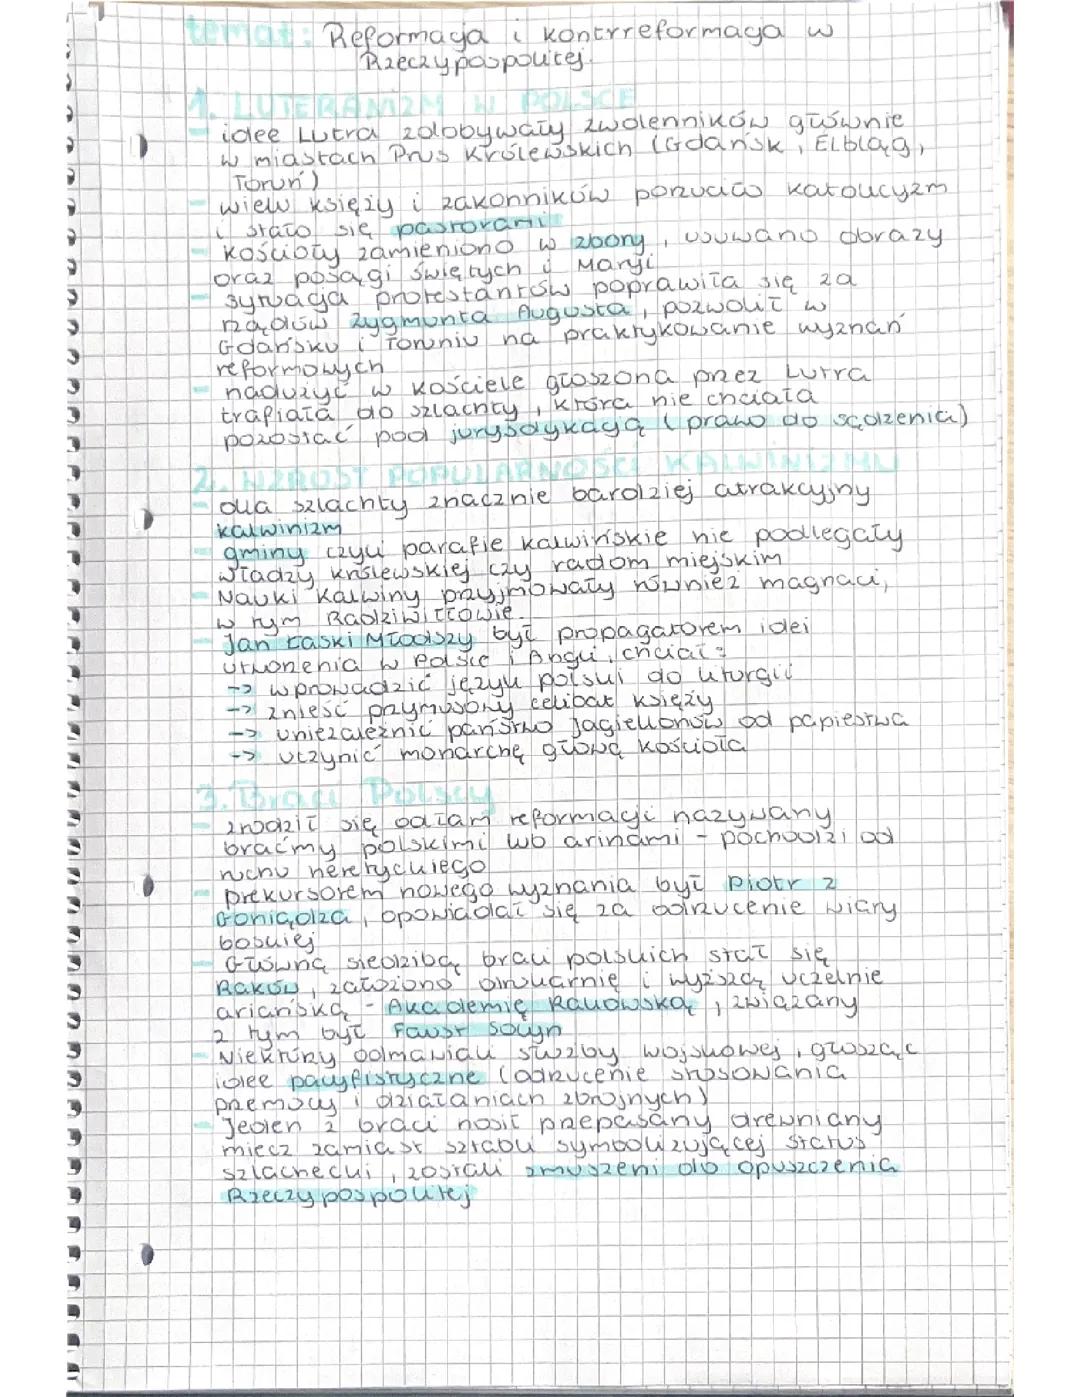 temat: Reformacja i kontrreformacja w
Rzeczypospolitej.
1. LUTERANIZM W POLSCE
- idee Lutra zdobywały zwolenników głównie
w miastach Prus Królewskich (Gdańsk, Elbląg,
Toruń)
- wielu księży i zakonników porzuciło katolicyzm
i stało się pastorami
- kościoły zamieniono w zbory, usuwano obrazy
oraz posągi świętych i Maryi
- sytuacja protestantów poprawiła się za
rządów Zygmunta Augusta, pozwolił w
Gdańsku i Toruniu na praktykowanie wyznań
reformowych
- nadużyć w kościele głoszona przez Lutra
trafiała do szlachty, która nie chciała
pozostać pod jurysdykcją (prawo do sądzenia)
2. WZROST POPULARNOŚCI KALWINIZMU
- dla szlachty znacznie bardziej atrakcyjny
kalwinizm
- gminy czyli parafie kalwińskie nie podlegały
władzy królewskiej czy radom miejskim
- Nauki Kalwiny przyjmowały również magnaci,
w tym Radziwiłłowie.
- Jan Łaski Młodszy był propagatorem idei
utworzenia w Polsce i Anglii, chciał:
-> wprowadzić język polski do liturgii
-> znieść przymusowy celibat księży
-> uniezależnić państwo Jagiellonów od papiestwa
-> uczynić monarchę głową kościoła
3. Braci Polscy
- zrodził się odłam reformacji nazywany
braćmy polskimi lub arinami - pochodzi od
ruchu heretyckiego
- prekursorem nowego wyznania był Piotr z
Goniądza, opowiadał się za odrzucenie wiary
boskiej
- Główną siedzibą braci polskich stał się
Raków, założono drukarnię i wyższą uczelnie
ariańską - Akademię Rakowską, związany
z tym był Faust Socyn
- Niektórzy odmawiali służby wojskowej, głosząc
idee pacyfistyczne (odrzucenie stosowania
przemocy i działaniach zbrojnych)
- Jeden z braci nosił przepasany drewniany
miecz zamiast szrabli symbolizującej status
szlachecki, zostali zmuszeni do opuszczenia
Rzeczypospolitej